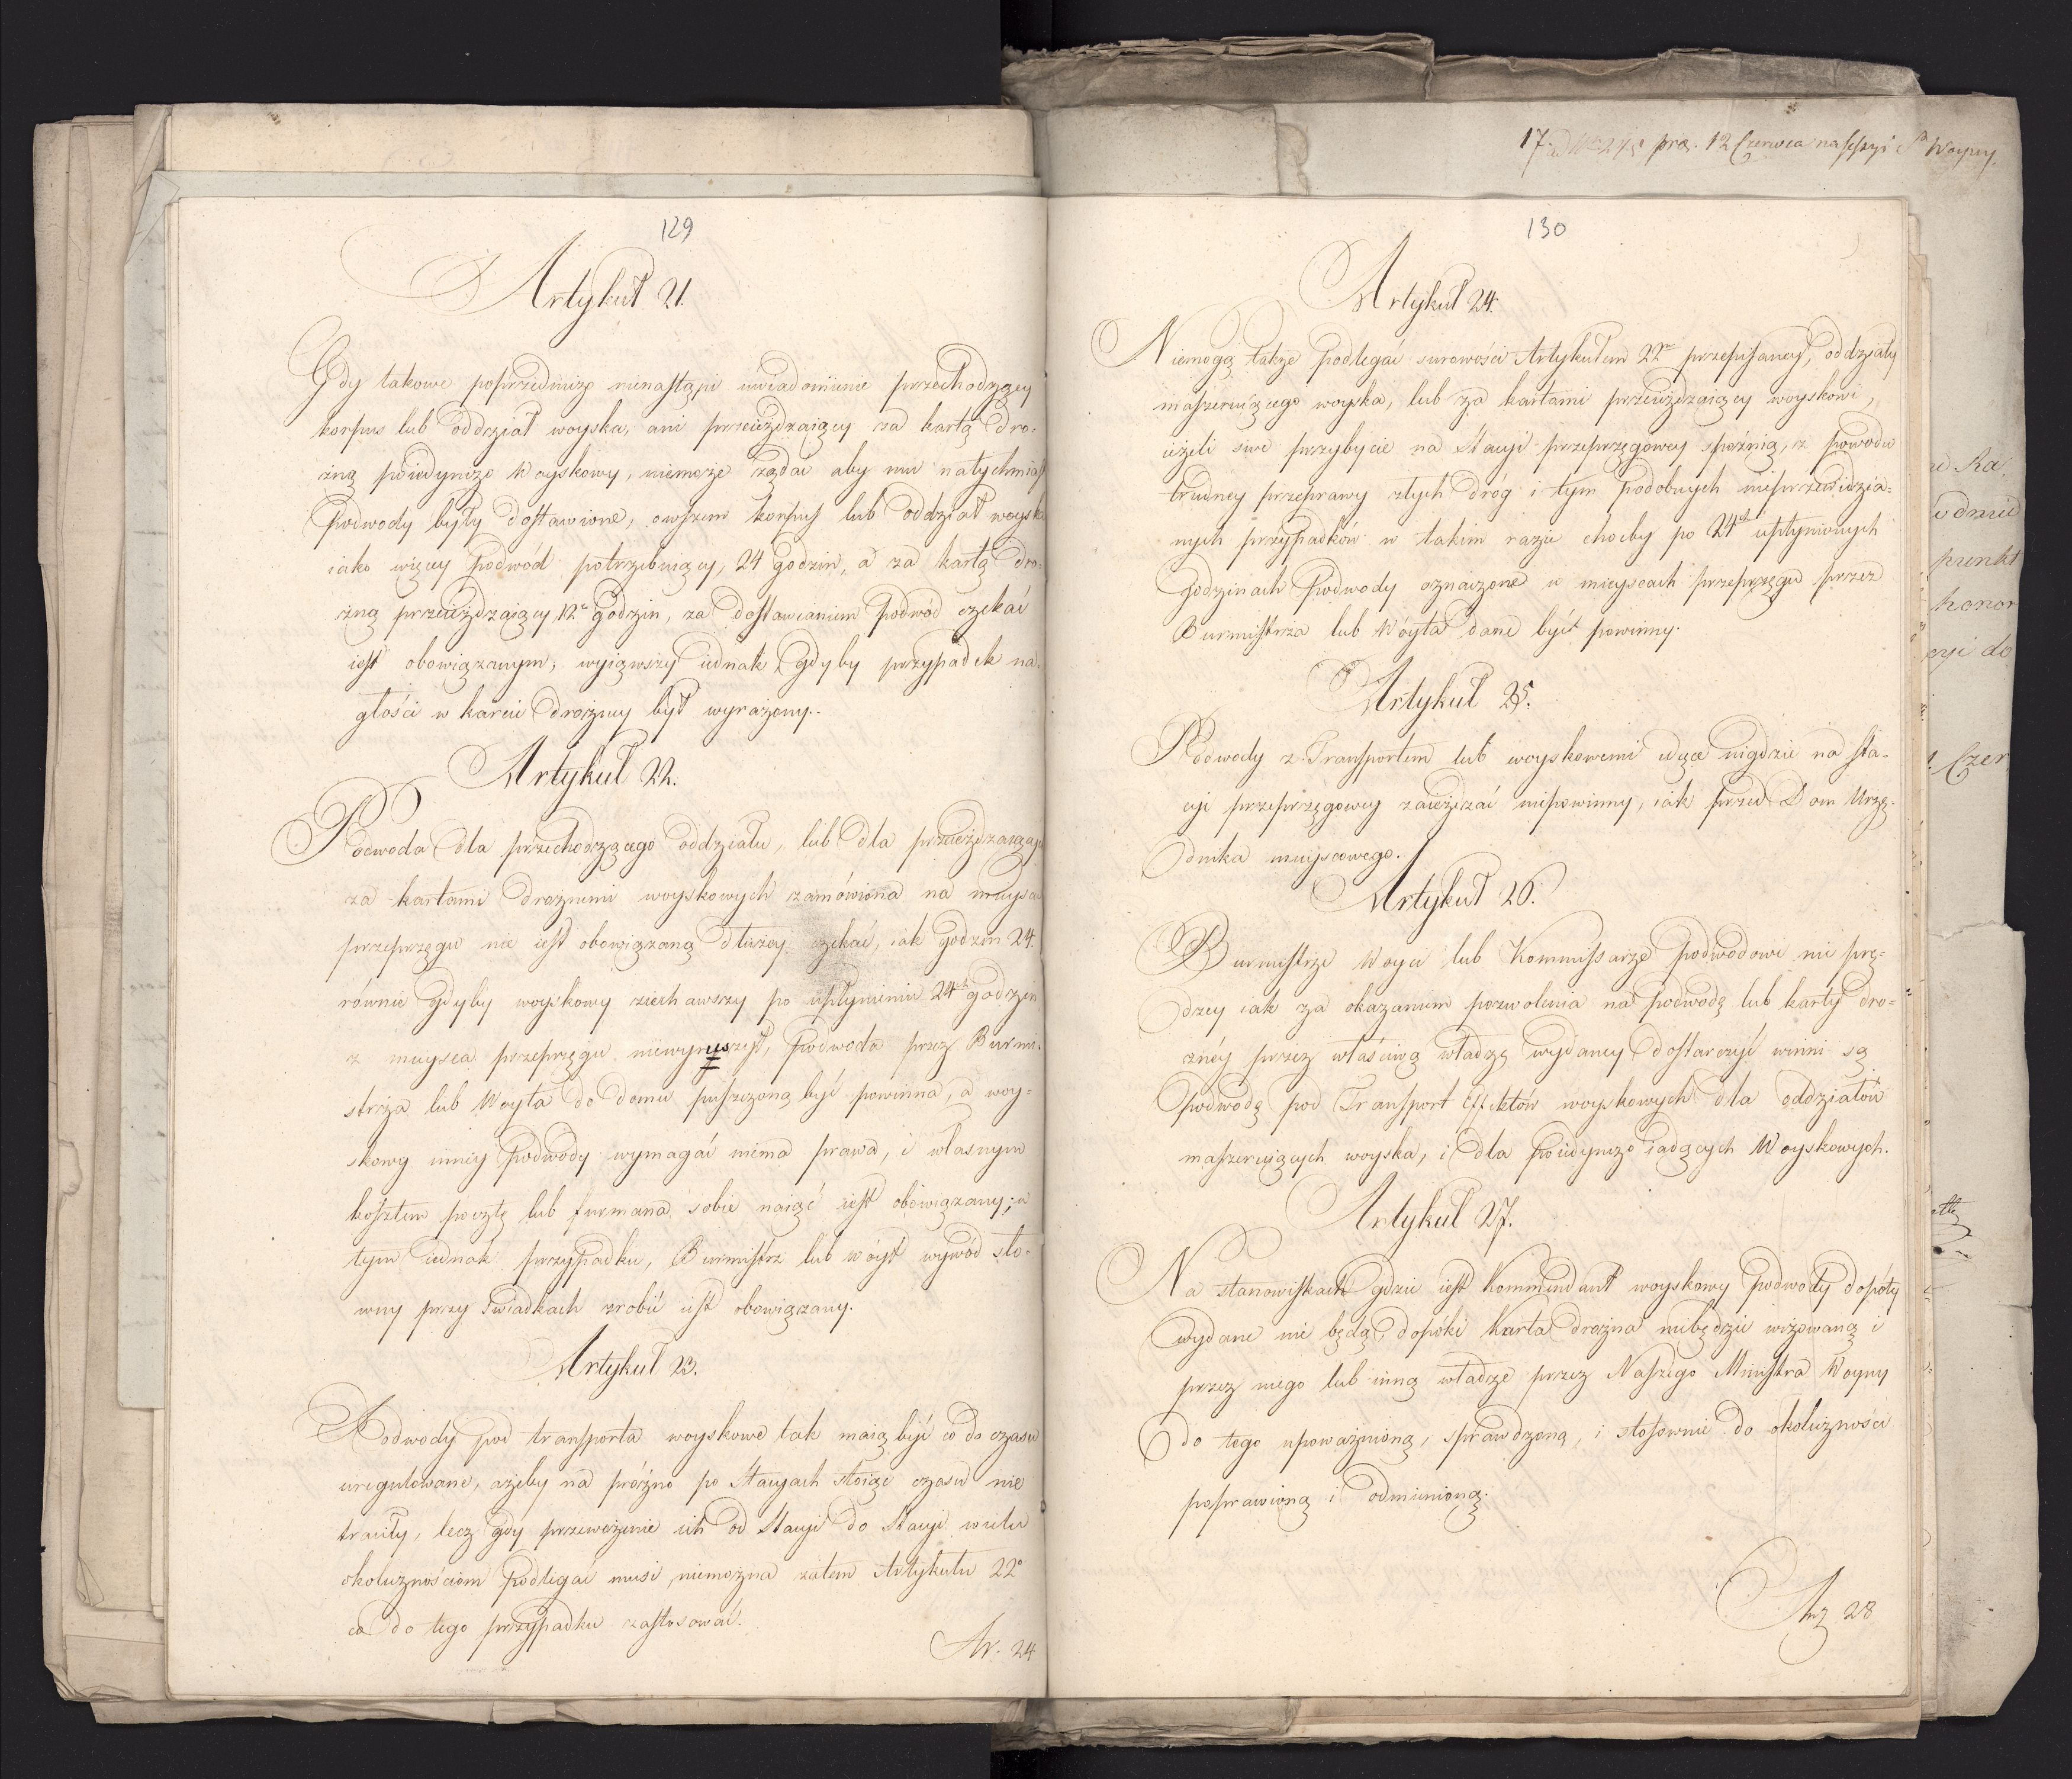 129
Artykuł 21.
Gdy takowe poprzednicze nienastąpi uwiadomienie przechodzący
korpus lub oddział woyska, ani przeieżdzaiący za kartą dro-
żną poiedynczo Woyskowy, niemoże żądać aby mu natychmiast
Podwody były dostawione, owszem korpus lub oddział woyska
iako więcey Podwód potrzebuiący, 24 godzin, a za kartą dro-
żną przeieżdzaiący 12e godzin, za dostawianiem Podwód czekać
iest obowiązanym, wyiąwszy iednak gdyby przypadek na-
głości w karcie drożney był wyrażony.
Artykuł 22.
Podwoda dla przechodzącego oddziału, lub dla przeieżdzaiących
za kartami drożnemi woyskowych zamówiona na mieysce
przeprzęgu nie iest obowiązaną dłużey czekać, iak godzin 24.
równie gdyby woyskowy ziechawszy po upłynieniu 24ch godzin
z mieysca przeprzęgu niewyruszył, Podwoda przez Burmi-
strza lub Woyta do domu puszczoną być powinna, a woy-
skowy inney Podwody wymagać niema prawa, i własnym
kosztem pocztę lub furmana sobie naiąć iest obowiązany; w
tym iednak przypadku, Burmistrz lub woyt wywód sło-
wny przy Swiadkach zrobić iest obowiązany.
Artykuł 23.
Podwody pod transporta woyskowe tak maią być co do czasu
uregulowane, ażeby na próżno po Stacyach stoiąc czasu nie
traciły, lecz gdy przewożenie ich od Stacyi do Stacyi wielu
okolicznościom podlegać musi, niemożna zatem Artykułu 22o
co do tego przypadku zastosować.
Ar. 24
17. ad Nro 245 prez. 12 Czerwca na sessyi Woyny.
130
Artykuł 24.
Niemogą także podlegać surowości Artykułem 22m przepisaney, oddziały
maszeruiącego woyska, lub za kartami przeieżdzaiący woyskowi,
ieżeli swe przybycie na Stacyi przeprzęgowey spóźnią, z powodu
trudney przeprawy złych dróg i tym podobnych nieprzewidzia-
nych przypadków w takim razie choćby po 24ch upłynionych
Godzinach Podwody oznaczone w mieyscach przeprzęgu przez
Burmistrza lub Wóyta dane być powinny.
Artykuł 25.
Podwody z Transportem lub woyskowemi idące nigdzie na sta-
cyi przeprzęgowey zaieżdzać niepowinny, iak przed Dom Urzę-
dnika mieyscowego.
Artykuł 26.
Burmistrze Woyci lub Kommissarze Podwodowi nie prę-
dzey iak za okazaniem pozwolenia na podwodę lub karty dro-
żnéy przez właściwą władzę wydaney dostarczyć winni są
podwodę pod Transport Effektów woyskowych dla oddziałów
maszeruiących woyska, i dla poiedynczo iadących Woyskowych.
Artykuł 27.
Na stanowiskach gdzie iest Kommendant woyskowy Podwody dopóty
wydane nie będą, dopóki Karta drożna niebędzie wizowaną i
przez niego lub inną władzę przez Naszego Ministra Woyny
do tego upoważnioną, sprawdzoną, i stosownie do okoliczności
poprawioną i odmienioną.
Art 28
punkt
honor
do
Czer